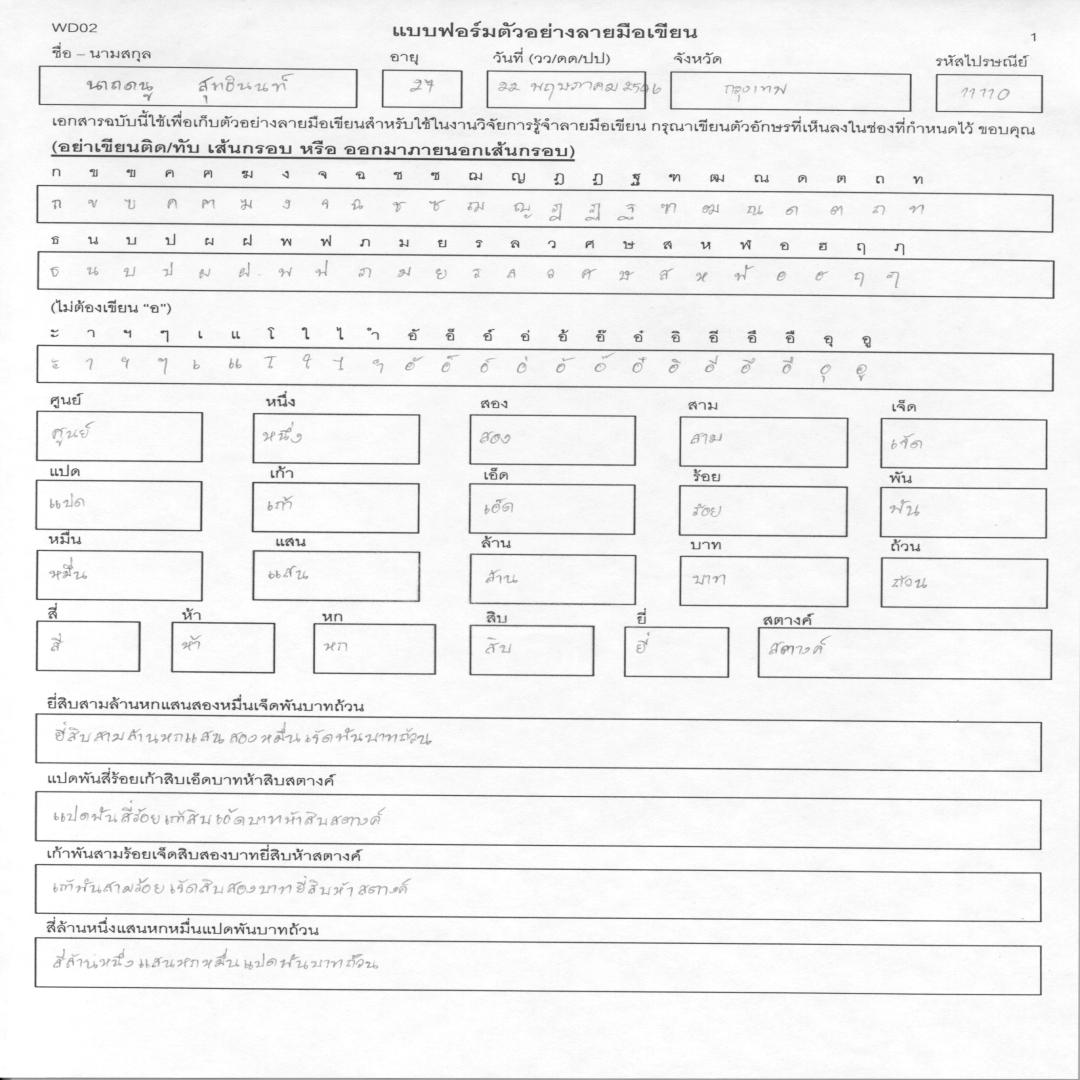 WD02 แบบฟอร์มตัวอย่างลายมือเขียน 1
ชื่อ – นามสกุล อายุ วันที่ (วว/ดด/ปป) จังหวัด รหัสไปรษณีย์
สุทธินนท์ 27 22 พฤษภาคม 2546 กรุงเทพ 11110
เอกสารฉบับนี้ใช้เพื่อเก็บตัวอย่างลายมือเขียนสำหรับใช้ในงานวิจัยการรู้จำลายมือเขียน กรุณาเขียนตัวอักษรที่เห็นลงในช่องที่กำหนดไว้ ขอบคุณ
(อย่าเขียนติด/ทับ เส้นกรอบ หรือ ออกมาภายนอกเส้นกรอบ)
ก ข ฃ ค ฅ ฆ ง จ ฉ ช ซ ฌ ญ ฎ ฏ ฐ ฑ ฒ ณ ด ต ถ ท
ก ข ฃ ค ฅ ฆ ง จ ฉ ช ซ ฌ ญ ฎ ฏ ฐ ฑ ฒ ณ ด ต ถ ท
ธ น บ ป ผ ฝ พ ฟ ภ ม ย ร ล ว ศ ษ ส ห ฬ อ ฮ ฤ ฦ
ธ น บ ป ผ ฝ พ ฟ ภ ม ย ร ล ว ศ ษ ส ห ฬ อ ฮ ฤ ฦ
(ไม่ต้องเขียน “อ”)
ะ า ฯ ๆ เ แ โ ใ ไ ำ อั อ็ อ์ อ่ อ้ อ๊ อ๋ อิ อี อึ อื อุ อู
ะ า ฯ ๆ เ แ โ ใ ไ ำ อั อ็ อ์ อ่ อ้ อ๊ อ๋ อิ อี อึ อื อุ อู
ศูนย์ หนึ่ง สอง สาม เจ็ด
ศูนย์ หนึ่ง สอง สาม เจ็ด
แปด เก้า เอ็ด ร้อย พัน
แปด เก้า เอ็ด ร้อย พัน
หมื่น แสน ล้าน บาท ถ้วน
หมื่น แสน ล้าน บาท ถ้วน
สี่ ห้า หก สิบ ยี่ สตางค์
สี่ ห้า หก สิบ ยี่ สตางค์
ยี่สิบสามล้านหกแสนสองหมื่นเจ็ดพันบาทถ้วน
ยี่สิบสามล้านหกแสนสองหมื่นเจ็ดพันบาทถ้วน
แปดพันสี่ร้อยเก้าสิบเอ็ดบาทห้าสิบสตางค์
แปดพันสี่ร้อยเก้าสิบเอ็ดบาทห้าสิบสตางค์
เก้าพันสามร้อยเจ็ดสิบสองบาทยี่สิบห้าสตางค์
เก้าพันสามร้อยเจ็ดสิบสองบาทยี่สิบห้าสตางค์
สี่ล้านหนึ่งแสนหกหมื่นแปดพันบาทถ้วน
สี่ล้านหนึ่งแสนหกหมื่นแปดพันบาทถ้วน